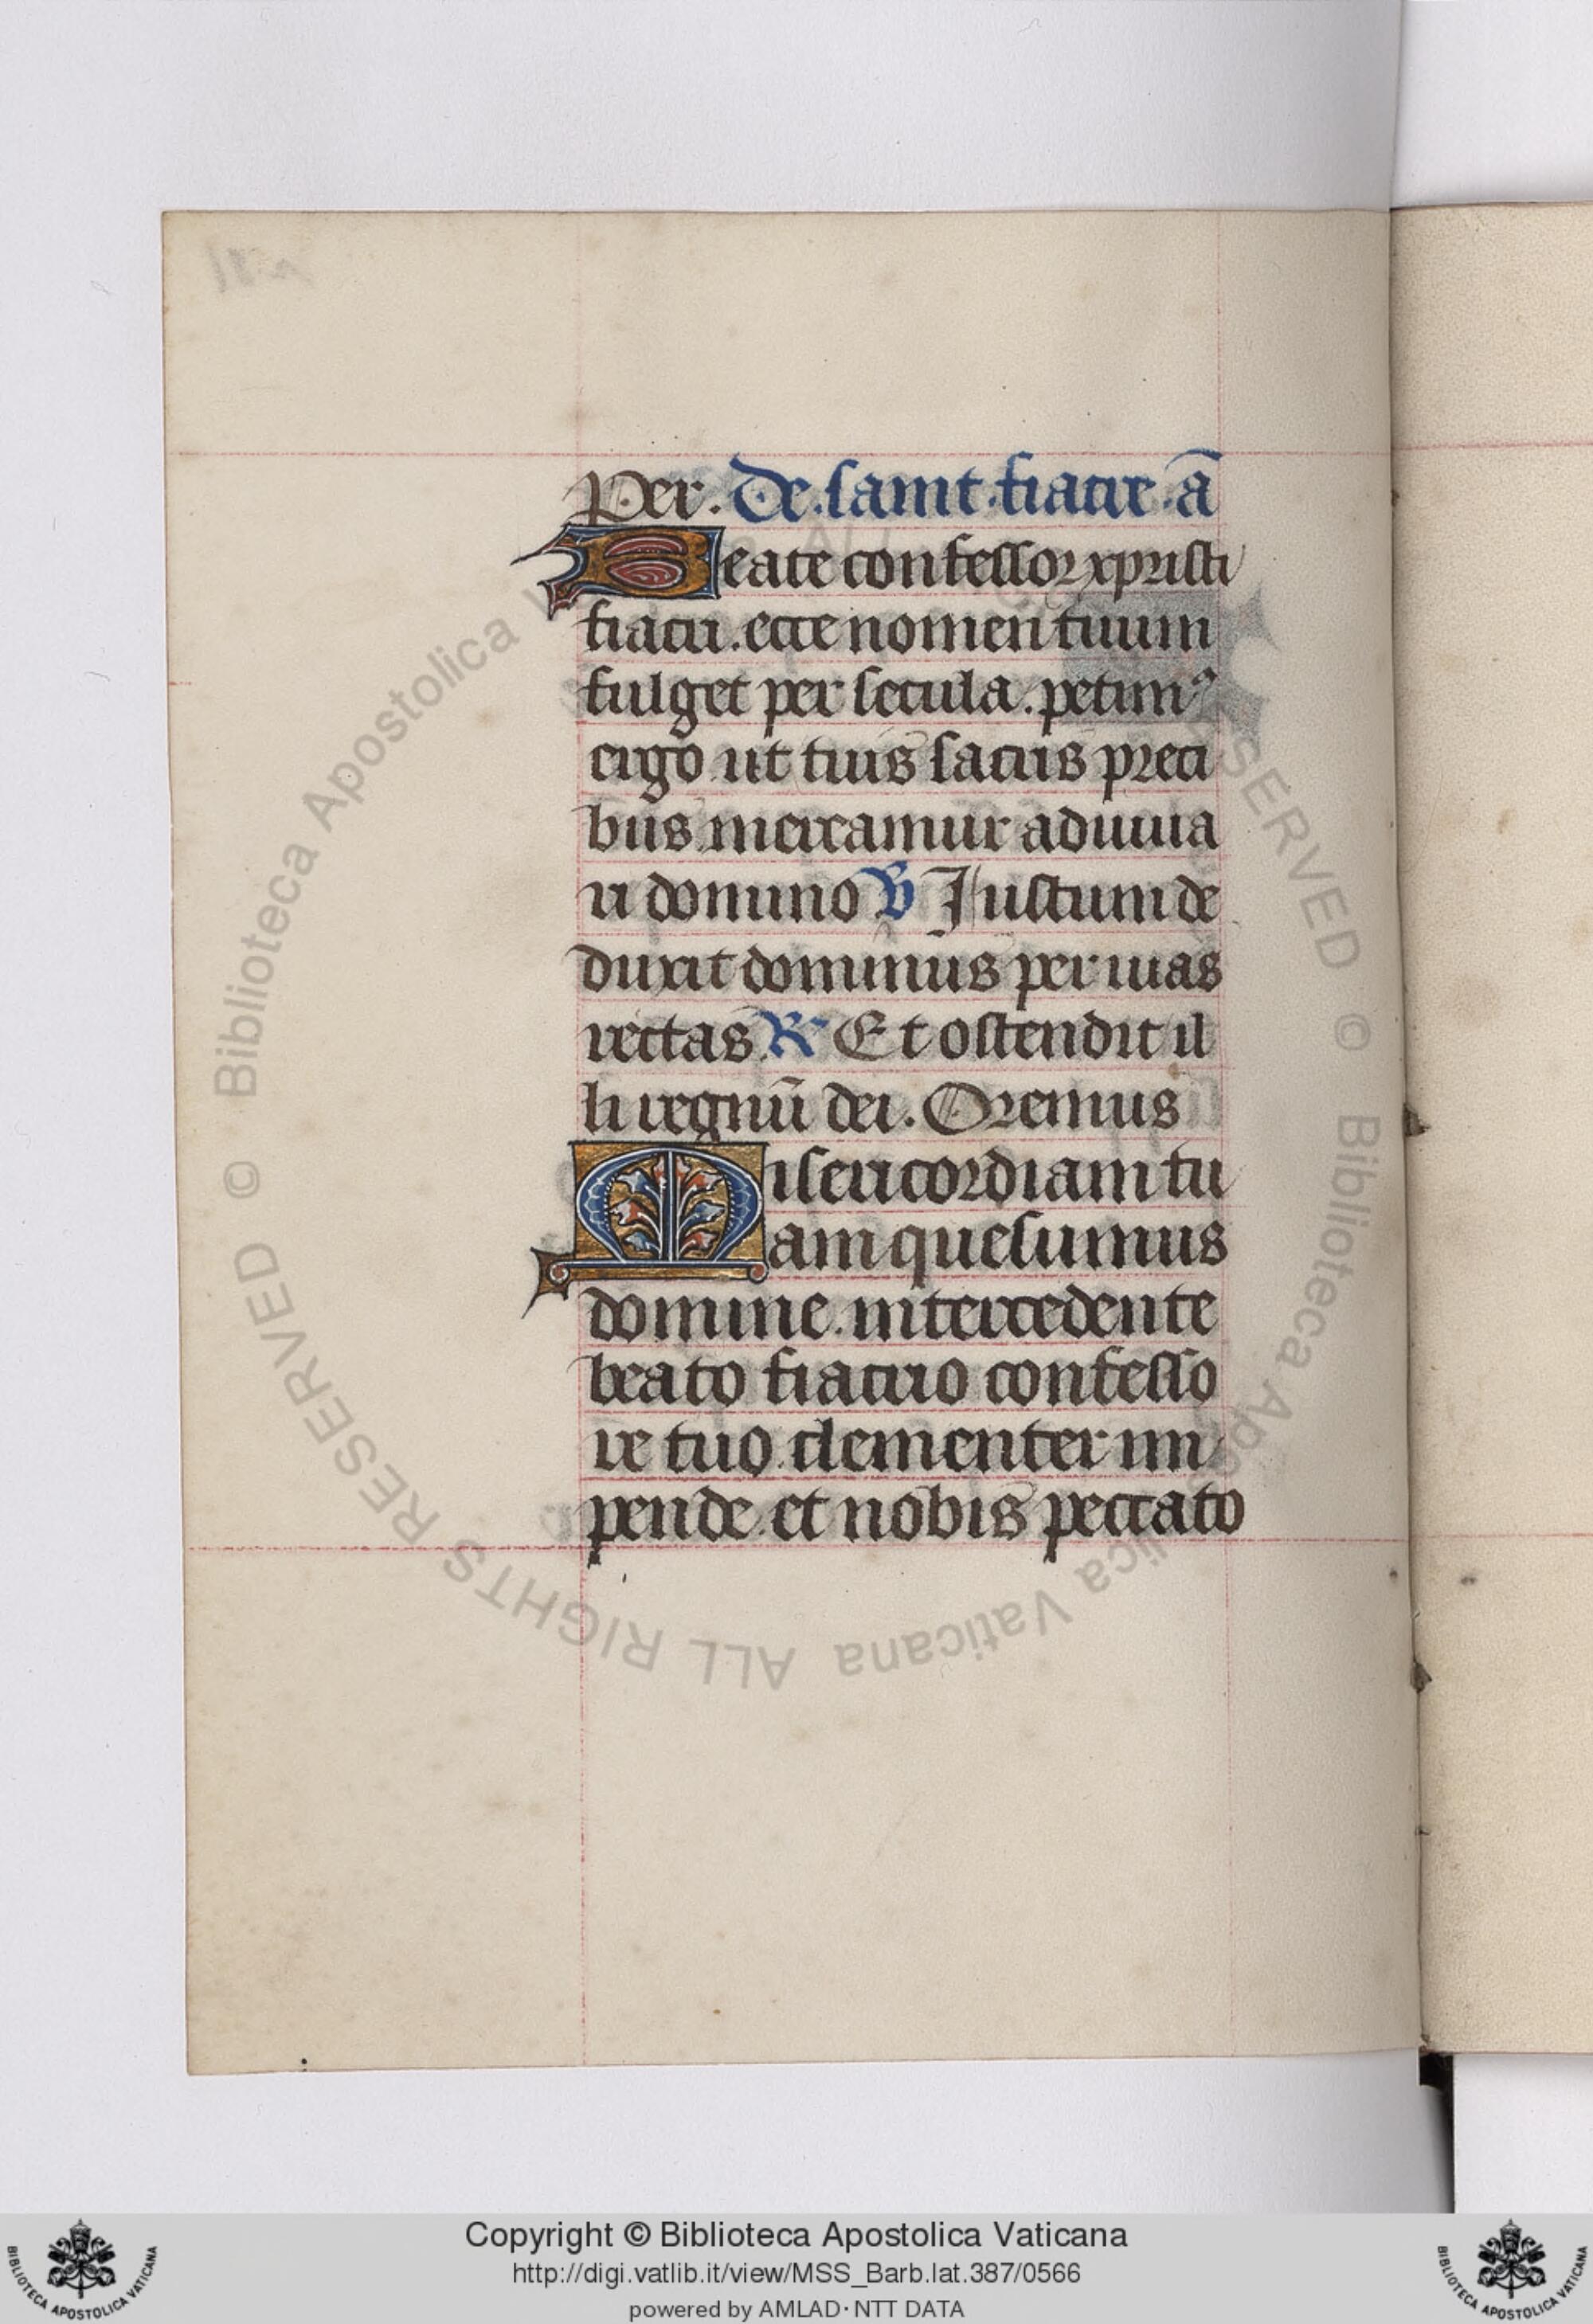 Per. De. saint. fiacre. ā
Beate confessor xpristi
fiacri. ecce nomen tuum
fulget per secula. petimꝰ
ergo ut tuis sacris preci
bus mereamur adiuua
ri domino ℣ Justum de
duxit dominus per uias
rectas ℟ Et ostendit il
li regnū dei. Oremus
Misericordiam tu
am quesumus
domine. intercedente
beato fiacrio confesso
re tuo clementer im
pende. et nobis peccato
© Biblioteca Apostolica Vaticana ALL RIGHTS RESERVED
Copyright © Biblioteca Apostolica Vaticana
http://digi.vatlib.it/view/MSS_Barb.lat.387/0566
powered by AMLAD · NTT DATA
BIBLIOTECA APOSTOLICA VATICANA
BIBLIOTECA APOSTOLICA VATICANA